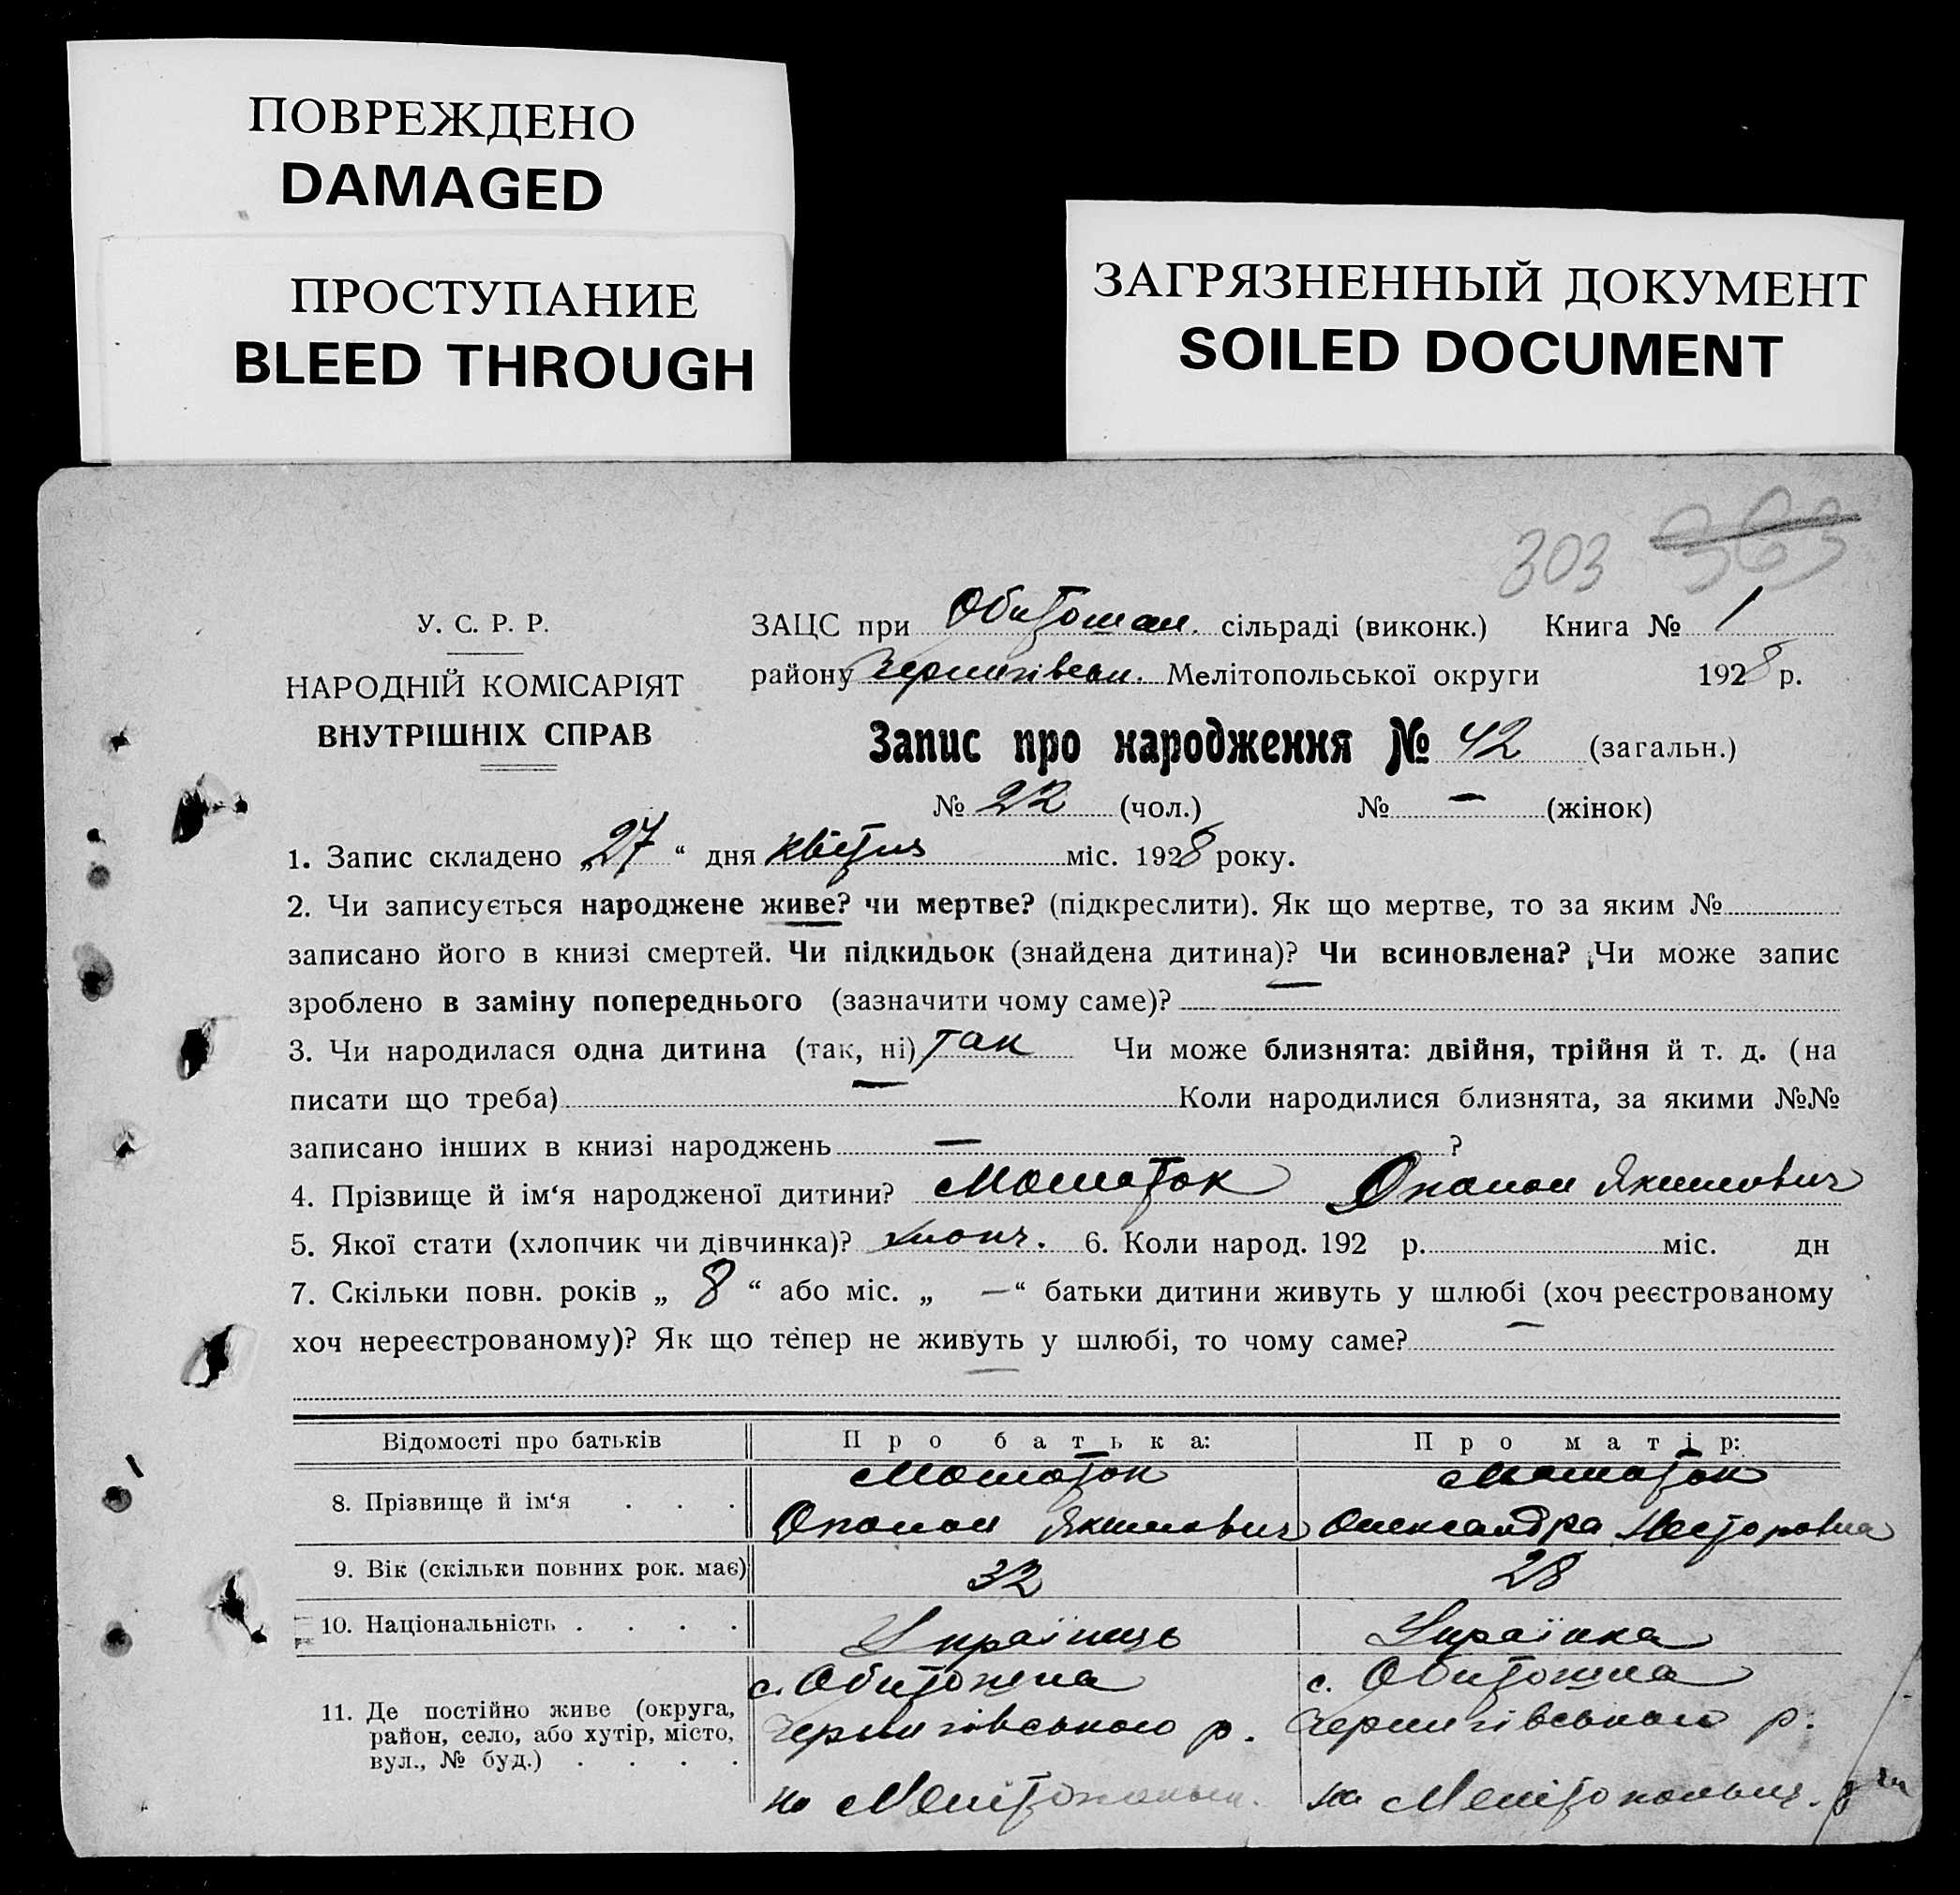 ПОВРЕЖДЕНО
DAMAGED
ПРОСТУПАНИЕ
BLEED THROUGH
ЗАГРЯЗНЕННЫЙ ДОКУМЕНТ
SOILED DOCUMENT
303 363
У. С. Р. Р.
НАРОДНІЙ КОМІСАРІЯТ
ВНУТРІШНІХ СПРАВ
ЗАЦС при Обитошан. сільраді (виконк.) Книга № 1
району Чернигівськ. Мелітопольської округи 1928 р.
Запис про народження № 42 (загальн.)
№ 22 (чол.) № — (жінок)
1. Запис складено „27“ дня квітня міс. 1928 року.
2. Чи записується народжене живе? чи мертве? (підкреслити). Як що мертве, то за яким №
записано його в книзі смертей. Чи підкидьок (знайдена дитина)? Чи всиновлена? Чи може запис
зроблено в заміну попереднього (зазначити чому саме)? —
3. Чи народилася одна дитина (так, ні) так Чи може близнята: двійня, трійня й т. д. (на
писати що треба) — Коли народилися близнята, за якими №№
записано інших в книзі народжень — ?
4. Прізвище й ім‘я народженої дитини? Машоток Опанон Якимович
5. Якої стати (хлопчик чи дівчинка)? хлопч. 6. Коли народ. 192 р. міс. дн
7. Скільки повн. років „ 8 “ або міс. „ —“ батьки дитини живуть у шлюбі (хоч реєстрованому
хоч нереєстрованому)? Як що тепер не живуть у шлюбі, то чому саме? —
Відомості про батьків Про батька: Про матір:
8. Прізвище й ім‘я . . . Машоток Машоток
Опанон Якимович Олександра Несторовна
9. Вік (скільки повних рок. має) 32 28
10. Національність . . . . Українець Українка
11. Де постійно живе (округа, район, село, або хутір, місто, вул., № буд.) . . . .
с. Обиточна с. Обиточна
Чернигівського р. Чернигівського р.
на Мелітопольщ. на Мелітопольщ.